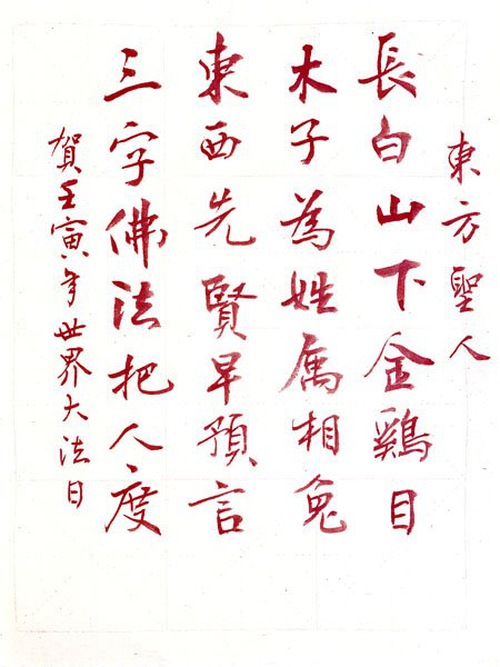 東方聖人
長白山下金鷄目
木子為姓属相兔
東西先賢早預言
三字佛法把人度
賀壬寅年世界大法日